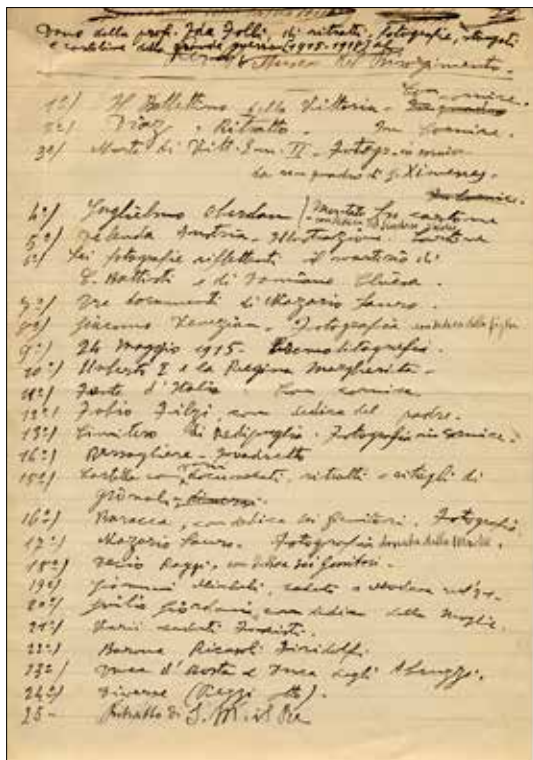 Dono della prof. Ida Folli, di ritratti, fotografie, stampati
e cartoline della grande guerra (1915-1918) al
Museo del Risorgimento.
Con cornice.
1º) Il Bollettino della Vittoria -
2º) Diaz - Ritratto. In cornice.
3º) Morte di Vitt. Em. II - Fotogr. in cornice
da un quadro di G. Ximenes.
4º) Guglielmo Oberdan (Montato su cartone
5º) Delenda Austria - Illustrazione. Cartone
6º) Sei fotografie riflettenti il martirio di
C. Battisti e di Damiano Chiesa.
7º) Tre documenti di Nazario Sauro.
8º) Giacomo Venezian. Fotografia con dedica della figlia
9º) 24 Maggio 1915. Cromolitografia.
10º) Umberto I e la Regina Margherita.
11º) Fante d'Italia. Con cornice
12º) Fabio Filzi con dedica del padre.
13º) Cimitero di Redipuglia. Fotografia in cornice.
14º) Bersagliere - Quadretto
15º) Cartella con documenti, ritratti e ritagli di
giornali
16º) Baracca, con dedica dei Genitori. Fotografia
17º) Nazario Sauro. Fotografia
18º) Decio Raggi, con dedica dei Genitori.
19º) Giovanni, caduto a Modena
20º) Giulio Giordani, con dedica della Moglie.
21º) Varii caduti Fascisti.
22º) Barone Ricasoli Firidolfi
23º) Duca d'Aosta e Duca degli Abruzzi.
24º) Diverse (Pezzi
25 - Ritratto di S. M. il Re